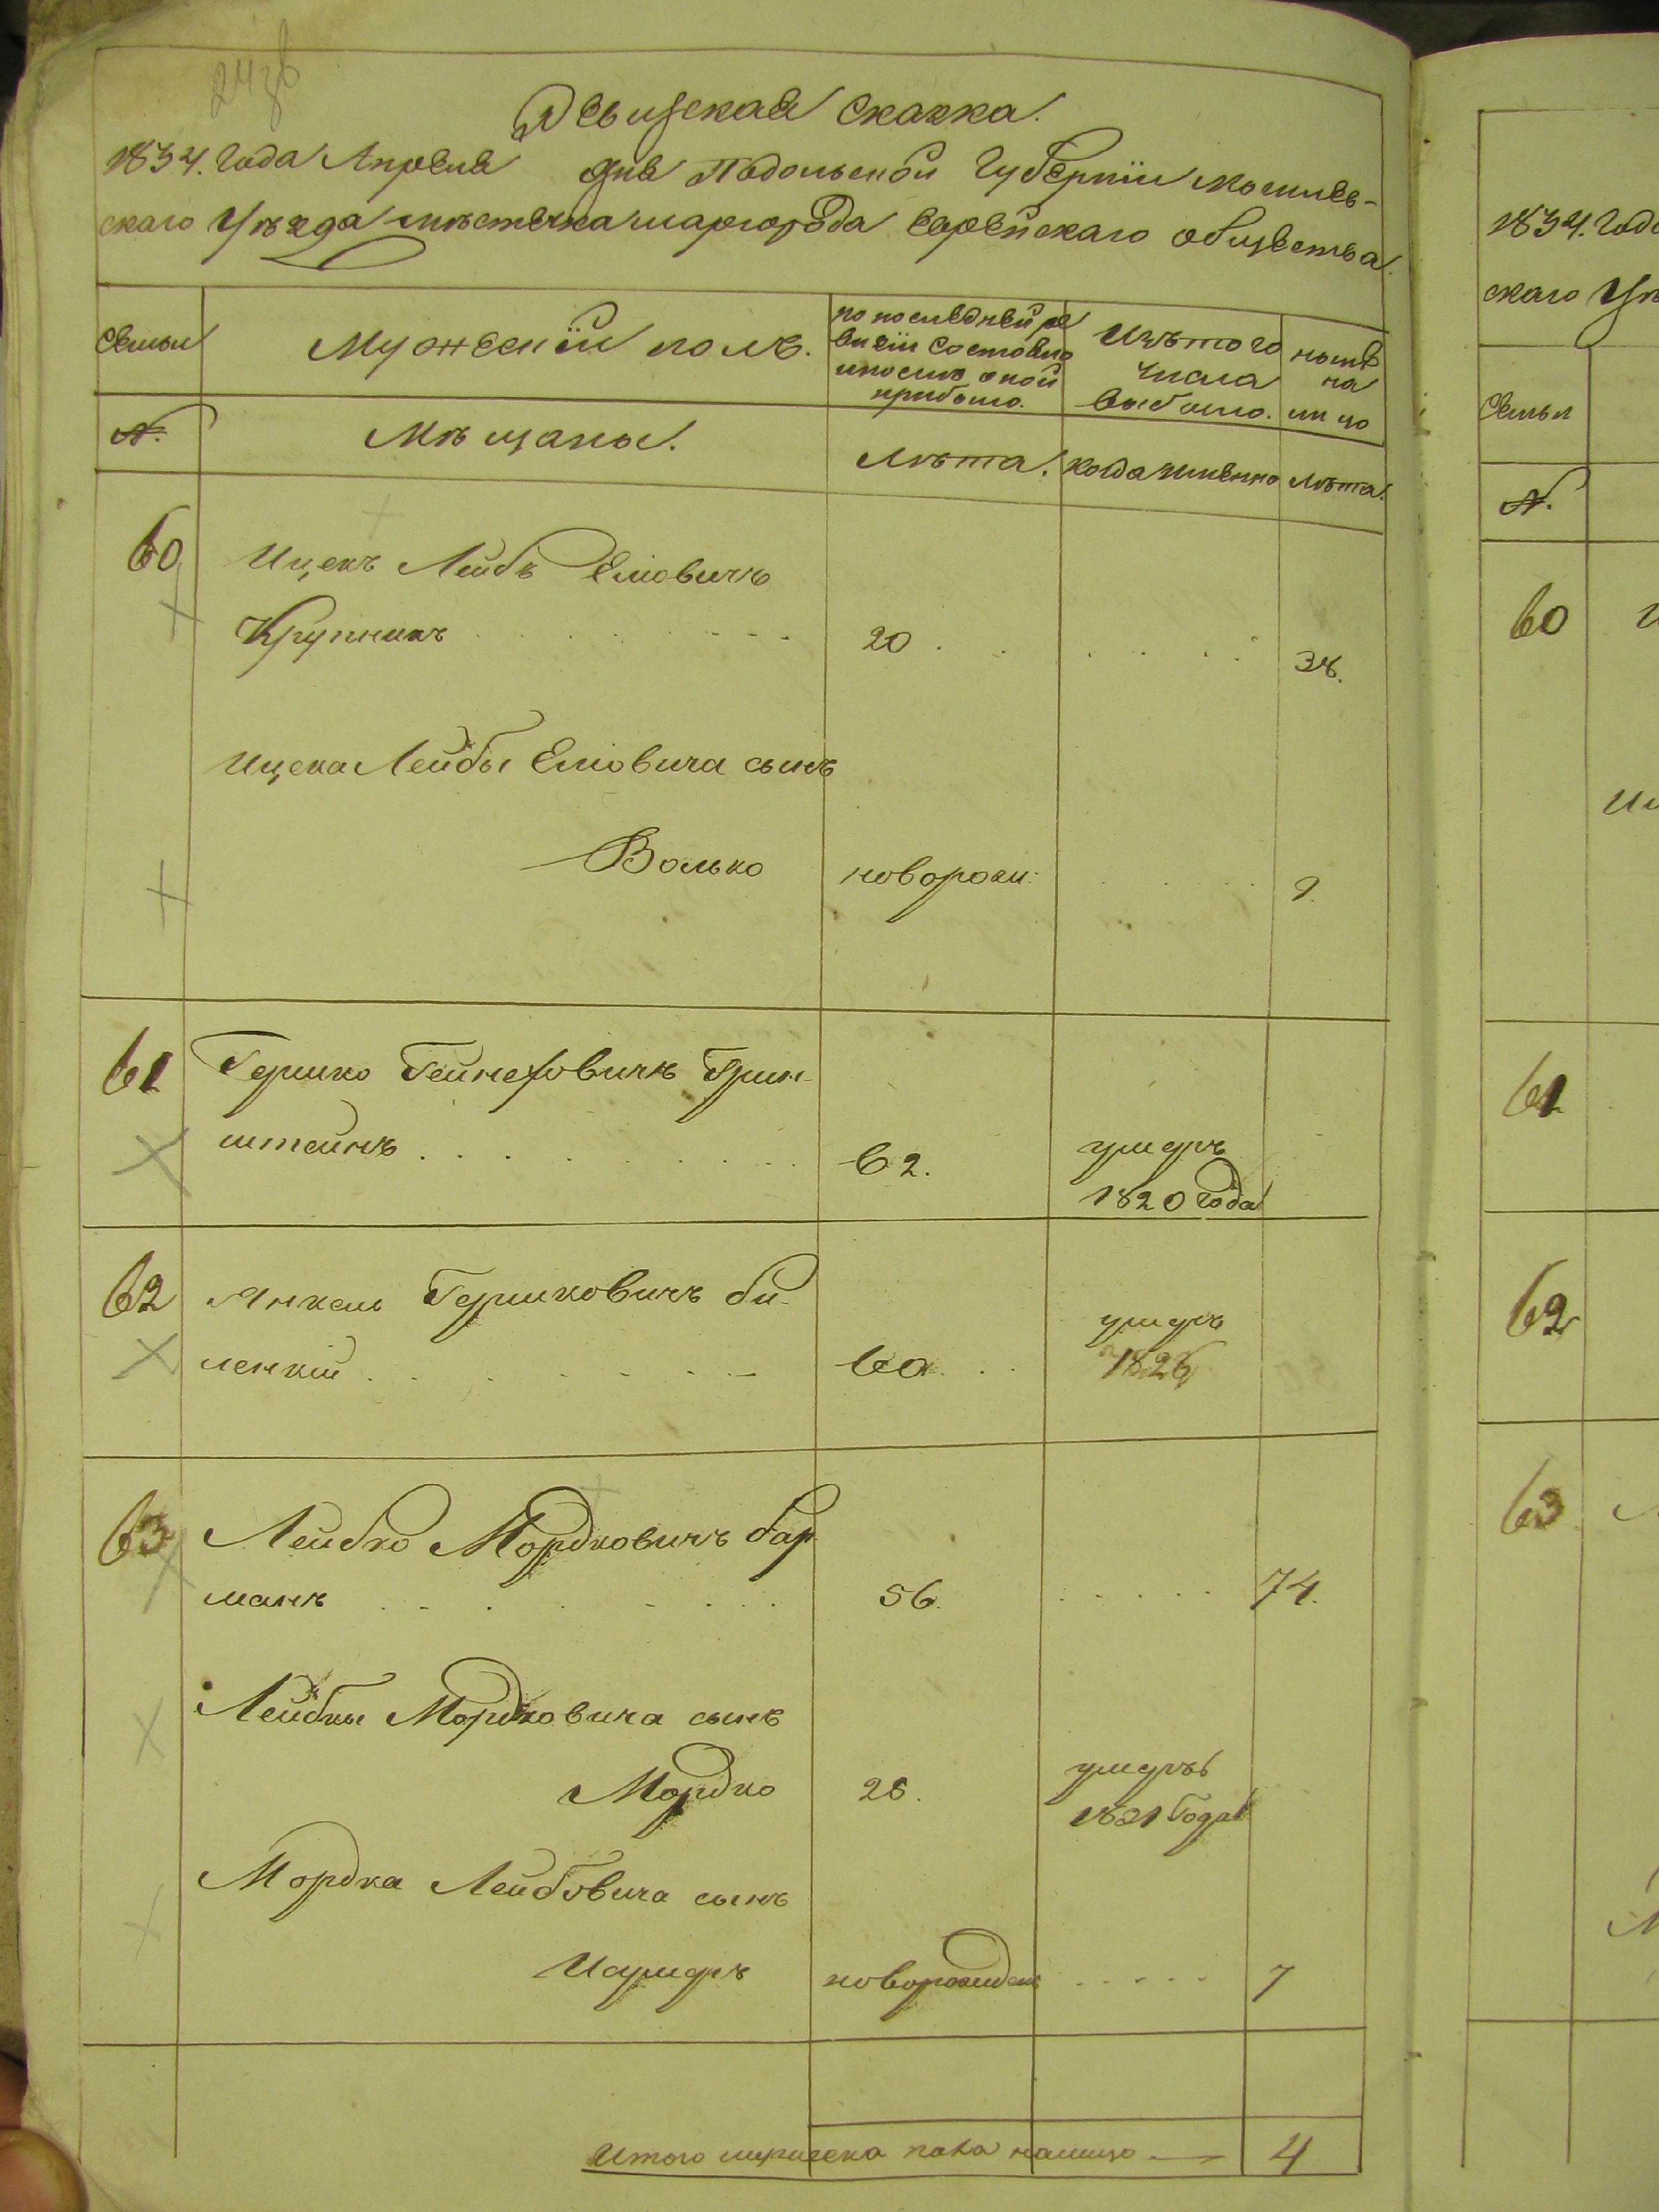 Ревизская сказка.
1834. года Апреля дня Подольской Губернiи Могилев-
скаго Уѣзда мѣстечка Шаргорода Еврейскаго общества.
Семьи
Мужескiй полъ.
по последней ре
визiи состояло
и после оной
прибыло.
Изъ того
числа
выбыло.
ныне
на
лицо
№.
Мѣщаны.
Лѣта.
когда именно
лѣта.
60
Ицекъ Лейбъ Елiовичъ
Крупникъ
20
34.
Ицека Лейбы Елiовича сынъ
Волько
наворожд:
9.
61
Гершко Гейнеховичъ Грин-
штейнъ
62.
умеръ
1820 года
62
Янкель Гершковичъ Би-
ленкiй
60
умеръ
1826
63
Лейбко Мордковичъ Бар
манъ
56.
74.
Лейбки Мордковича сынъ
Мордко
26.
умеръ
1831 года
Мордка Лейбовича сынъ
новорожден
7
Итого мужеска пола налицо —
4
1834. Года
скаго Уѣ
Семьи
№.
60
61
62
63